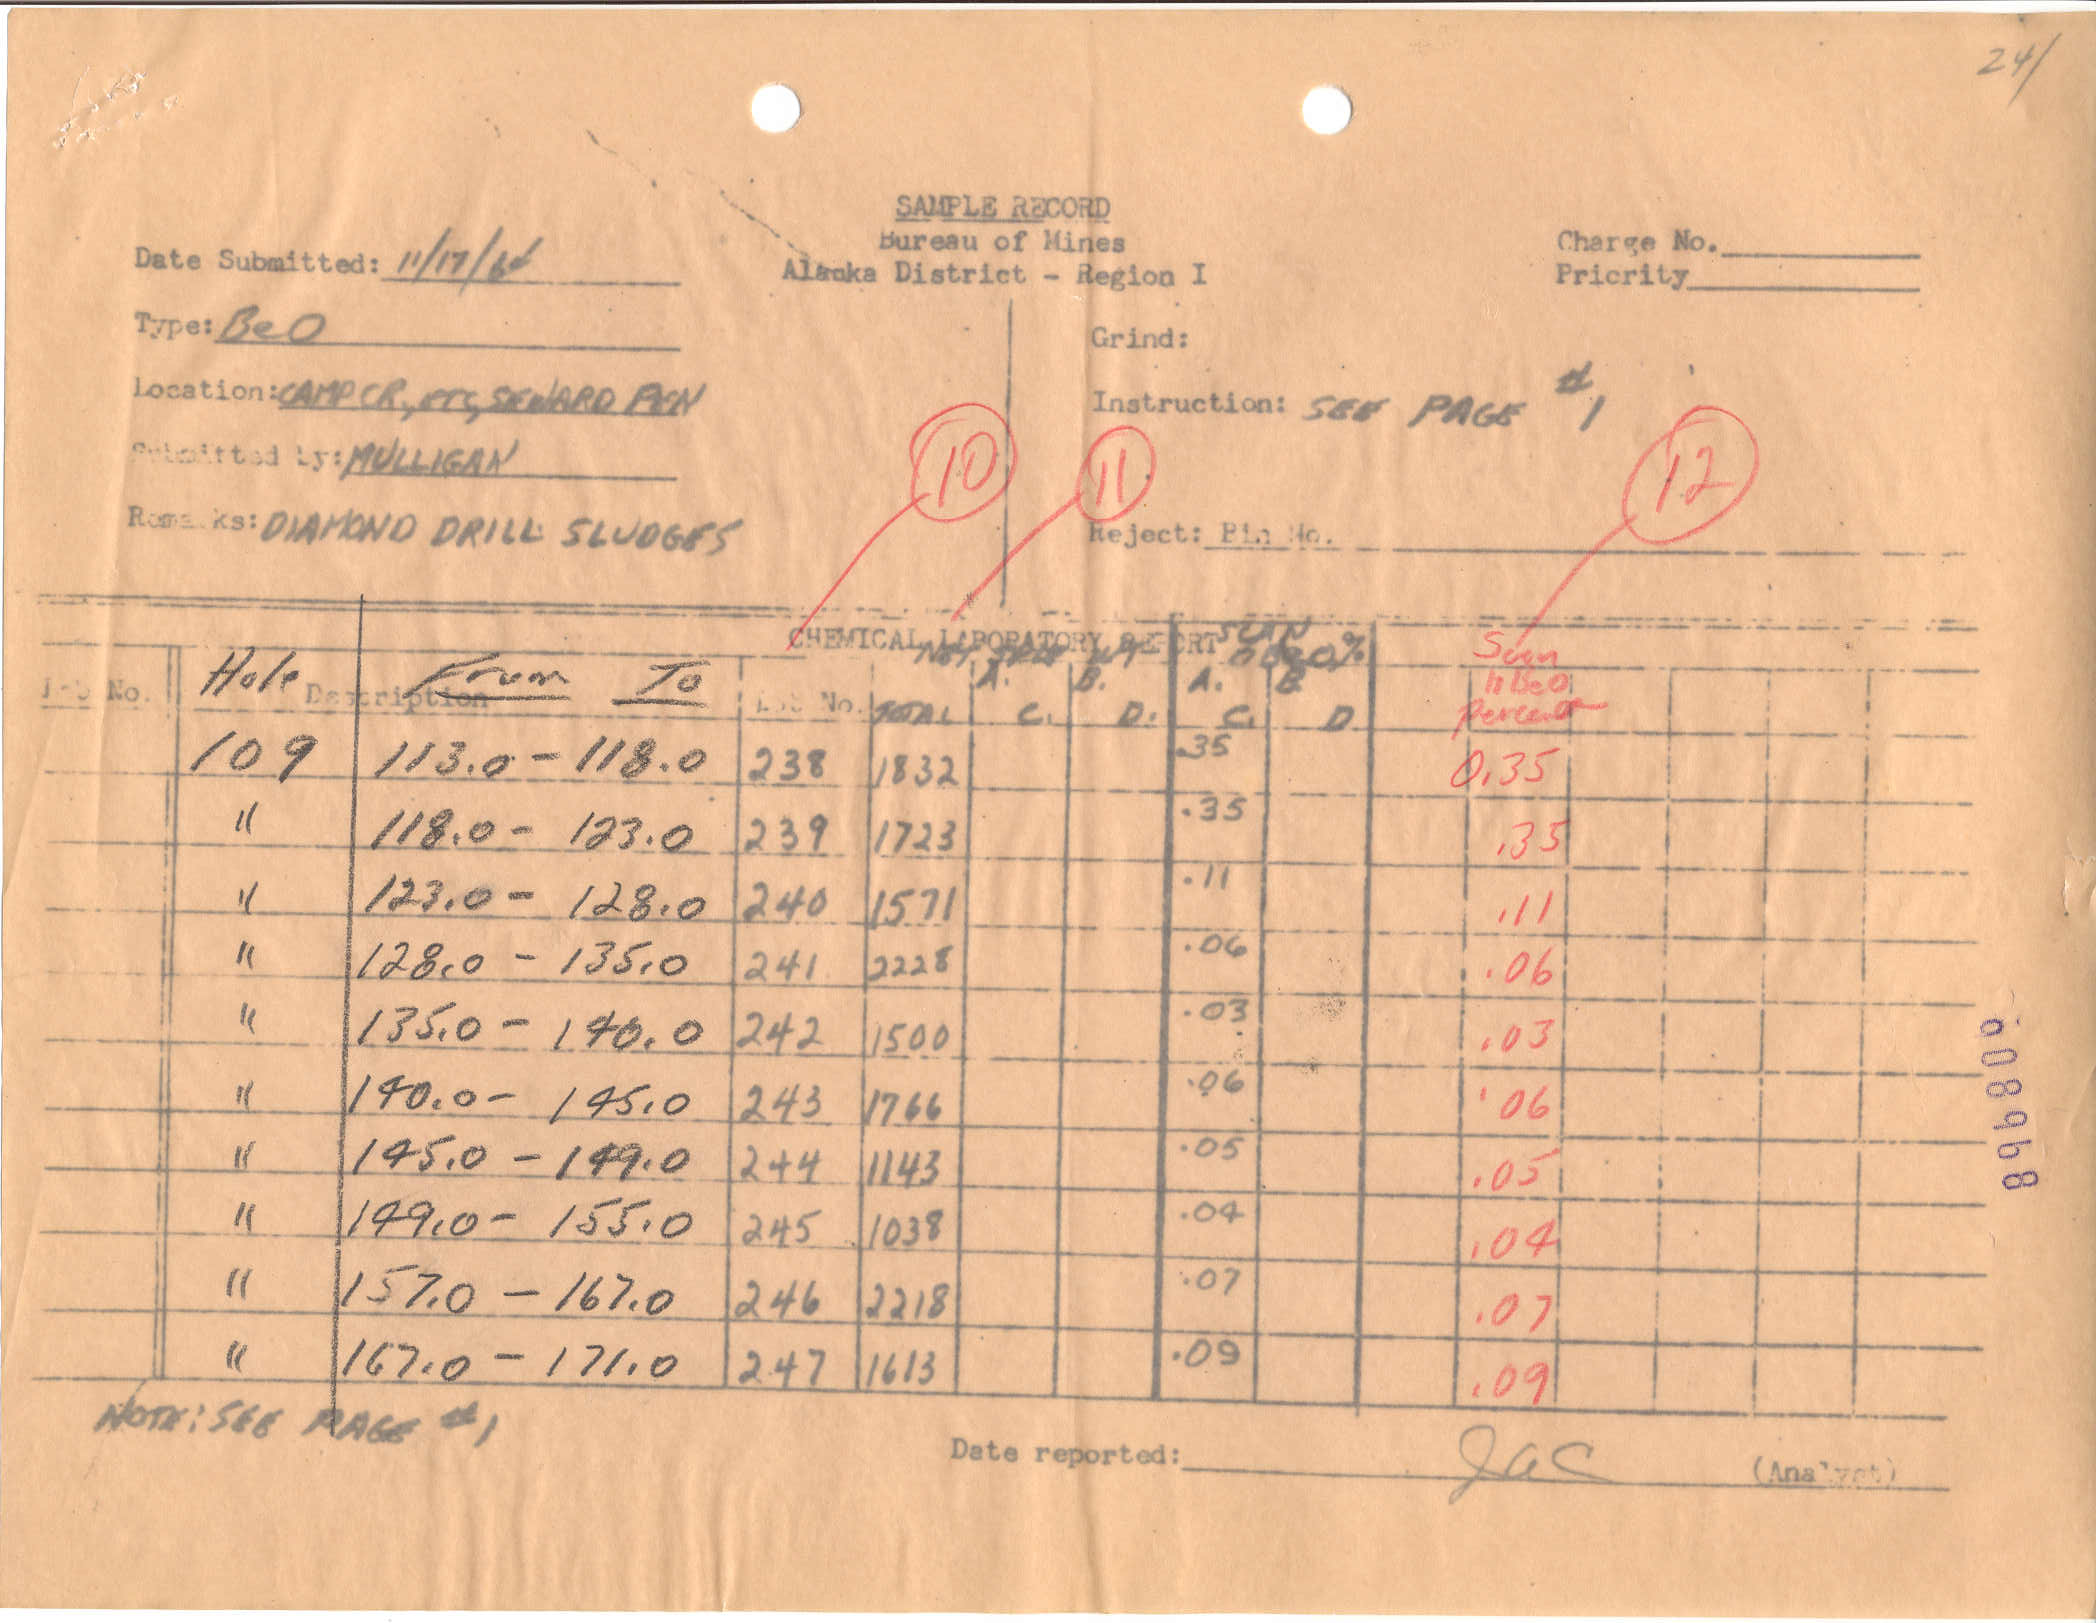 24/
SAMPLE RECORD
Bureau of Mines
Alaska District - Region I
Charge No.
Priority
Date Submitted: 11/17/64
Type: BeO
Location: CAMP CR, ETC, SEWARD PEN
Submitted by: MULLIGAN
Remarks: DIAMOND DRILL SLUDGES
Grind:
Instruction: SEE PAGE #1
10 11 12
Reject: Bin No.
CHEMICAL LABORATORY REPORT
Lab No. Hole Description From To Lot No. TOTAL A. C. B. D. A. C. B D BeO Percent
109 113.0 - 118.0 238 1832 .35 0.35
" 118.0 - 123.0 239 1723 .35 .35
" 123.0 - 128.0 240 1571 .11 .11
" 128.0 - 135.0 241 2228 .06 .06
" 135.0 - 140.0 242 1500 .03 .03
" 140.0 - 145.0 243 1766 .06 .06
" 145.0 - 149.0 244 1143 .05 .05
" 149.0 - 155.0 245 1038 .04 .04
" 157.0 - 167.0 246 2218 .07 .07
" 167.0 - 171.0 247 1613 .09 .09
NOTE: SEE PAGE #1
Date reported: JAC (Analyst)